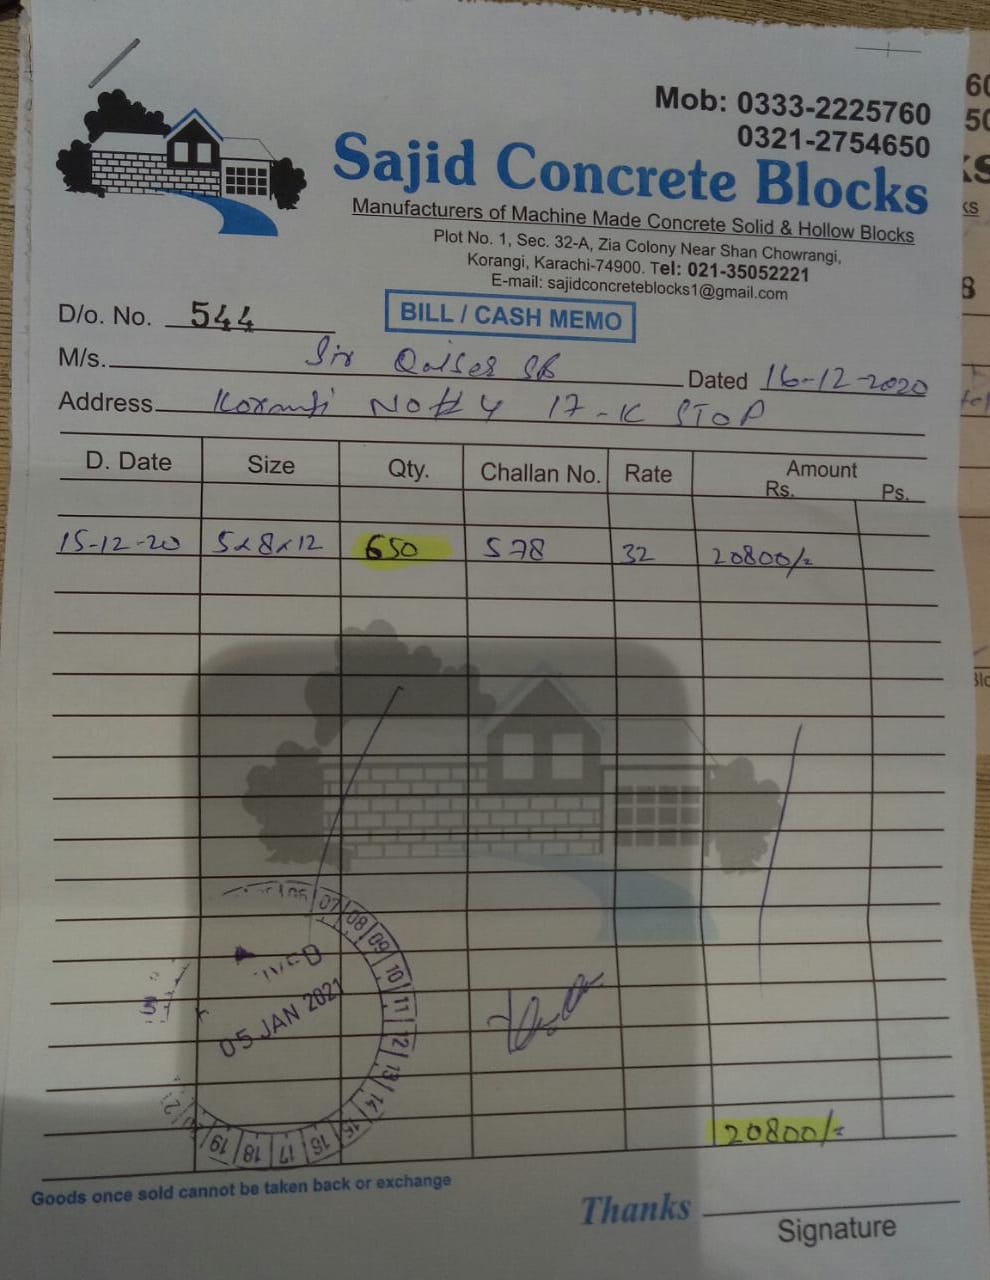 Mob: 0333-2225760
0321-2754650
Sajid Concrete Blocks
Manufacturers of Machine Made Concrete Solid & Hollow Blocks
Plot No. 1, Sec. 32-A, Zia Colony Near Shan Chowrangi,
Korangi, Karachi-74900. Tel: 021-35052221
E-mail: sajidconcreteblocks1@gmail.com
D/o. No. 544 BILL / CASH MEMO
M/s. Sir Qaiser SB Dated 16-12-2020
Address Korangi No # 4 17-K STOP
D. Date Size Qty. Challan No. Rate Amount
Rs. Ps.
15-12-20 5x8x12 650 578 32 20800/=
07 08 09 10 11 12 13 14 15 16 17 18 19
05 JAN 2021
20800/=
Goods once sold cannot be taken back or exchange
Thanks
Signature